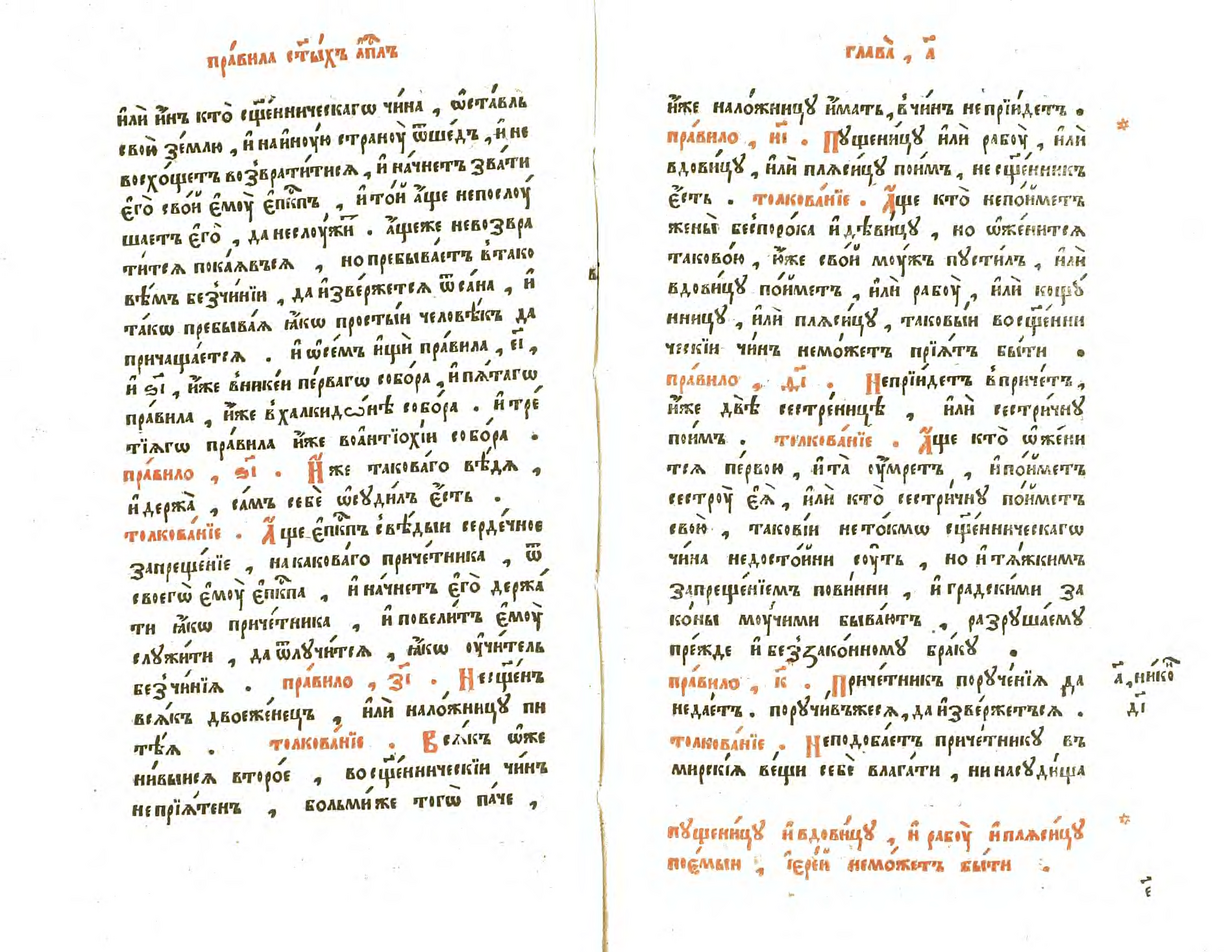 пра́вила ст҃ы́хъ а҆пл҃ъ
и҆лѝ и҆́нъ кто̀ сщ҃е́нническагѡ чи́на , ѡ҆ста́вль
свою̀ зе́млю , и҆ на и҆нꙋ́ю странꙋ̀ ѿше́дъ , и҆ не
восхо́щетъ возврати́тися , и҆ на́чнетъ зва́ти
є҆го̀ сво́й є҆мꙋ̀ є҆пⷭ҇кпъ , и҆ то́й а҆́ще непослꙋ́
шаетъ є҆го̀ , да неслꙋ́жи́т . а҆́щеже невозвра
ти́тся пока́явъся , но пребыва́етъ в та́ко
вѣ́мъ безчи́нїи , да и҆зве́ржется ѿ са́на , и҆
та́кѡ пребыва́я ꙗ҆́кѡ просты́и человѣ́къ да
причаща́ется . и҆ ѡ҆ се́мъ и҆щѝ пра́вила , є҃і ,
и҆ ѕ҃і , и҆́же в нике́и пе́рвагѡ собо́ра , и҆ пѧ́тагѡ
пра́вила , и҆́же в халкидѡ́нѣ собо́ра . и҆ тре́
тїягѡ пра́вила и҆́же во а҆нтїохі́и собо́ра .
пра́вило , ѕ҃і . И҆́же такова́го вѣ́дѧ ,
и҆ держа̀ , са́мъ себѐ ѡ҆сꙋди́лъ є҆́сть .
толкова́нїе . А҆́ще є҆пⷭ҇кпъ свѣ́дыи серде́чное
запреще́нїе , на какова́го приче́тника , ѿ
своегѡ̀ є҆мꙋ̀ є҆пⷭ҇кпа , и҆ на́чнетъ є҆го̀ держа́
ти ꙗ҆́кѡ приче́тника , и҆ повели́тъ є҆мꙋ̀
слꙋжи́ти , да ѿлꙋчи́тся , ꙗ҆́кѡ ᲂу҆чи́тель
безчи́нїя . пра́вило , з҃і . Несщ҃е́нъ
всѧ́къ двоеже́нецъ , и҆лѝ нало́жницꙋ пи
тѣ́я . толкова́нїе . Всѧ́къ ѡ҆же
ни́выися второ́е , во сщ҃е́нническїи чи́нъ
непрїѧ́тенъ , больми́же тогѡ̀ па́че ,
глава̀ , а҃
и҆́же нало́жницꙋ и҆́мать , в чи́нъ непрїи́детъ .
пра́вило , и҃і . Пꙋщени́цꙋ и҆лѝ рабꙋ̀ , и҆лѝ
вдови́цꙋ , и҆лѝ плѧси́цꙋ пои́мъ , не сщ҃е́нникъ
є҆́сть . толкова́нїе . А҆́ще кто̀ непо́йметъ
жены̀ беспоро́ка и҆ дѣви́цꙋ , но ѡ҆же́нится
таково́ю , ю҆́же сво́й мꙋ́жъ пꙋсти́лъ , и҆лѝ
вдови́цꙋ по́йметъ , и҆лѝ рабꙋ̀ , и҆лѝ кощꙋ́
нницꙋ , и҆лѝ плѧси́цꙋ , таковы́и во сщ҃е́нни
ческїи чи́нъ немо́жетъ прїѧ́тъ бы́ти .
пра́вило , д҃і . Непрїи́детъ в при́че́тъ ,
и҆́же двѣ̀ сестре́ницѣ , и҆лѝ се́стричнꙋ
пои́мъ . толкова́нїе . А҆́ще кто̀ ѡ҆же́ни
тся пе́рвою , и҆ та̀ ᲂу҆́мретъ , и҆ по́йметъ
сестрꙋ̀ є҆ѧ̀ , и҆лѝ кто̀ се́стричнꙋ по́йметъ
свою̀ , таковїи не то́кмѡ сщ҃е́нническагѡ
чи́на недосто́йни сꙋ́ть , но и҆ тѧ́жкимъ
запреще́нїемъ пови́нни , и҆ градски́ми за
ко́ны мꙋ́чими быва́ютъ , разрꙋша́емꙋ
пре́жде и҆ беззако́нномꙋ бра́кꙋ .
пра́вило , к҃ . Приче́тникъ порꙋче́нїя да
неда́етъ . порꙋчи́въжеся , да и҆зве́ржетъся .
толкова́нїе . Неподоба́етъ приче́тникꙋ въ
мирскі́я ве́щи себѐ влага́ти , ни на сꙋди́ща
а҃ , нико́
д҃і
* пꙋщени́цꙋ и҆ вдови́цꙋ , и҆ рабꙋ̀ и҆ плѧси́цꙋ
пое́мыи , і҆ере́й немо́жетъ бы́ти .
є҃